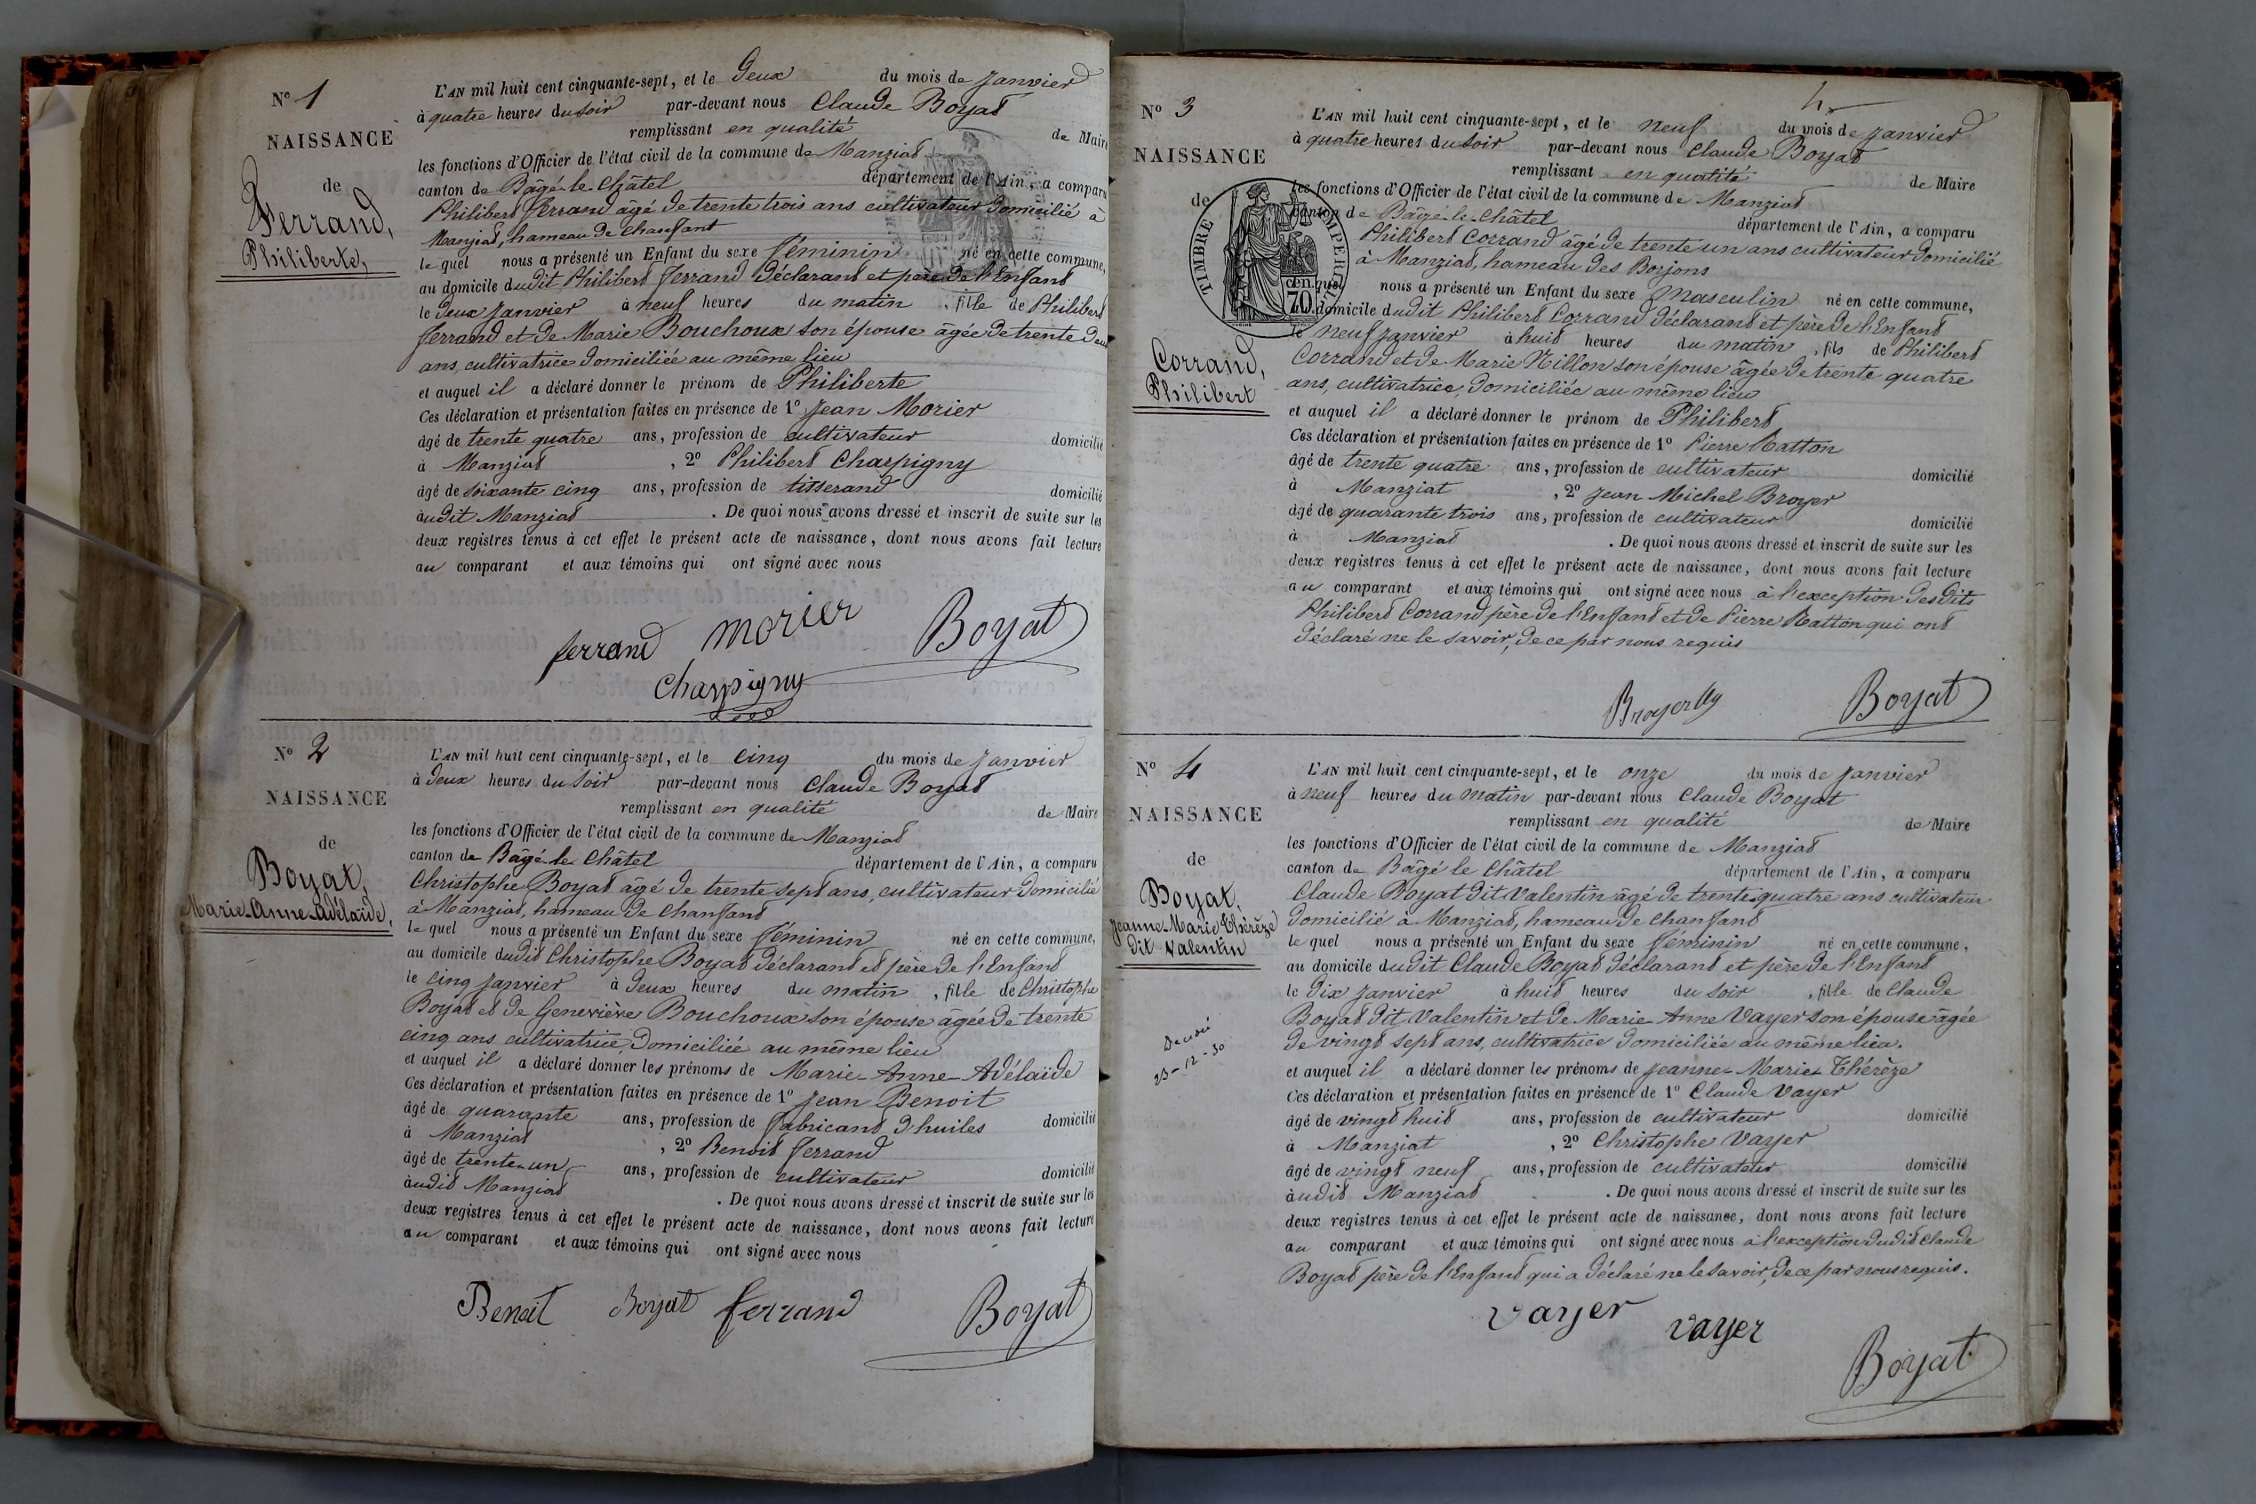 N° 1
NAISSANCE
de
Ferrand,
Philiberte,
L'AN mil huit cent cinquante-sept, et le Deux du mois de Janvier
à quatre heures du soir par-devant nous Claude Boyat
remplissant en qualité de Maire
les fonctions d'Officier de l'état civil de la commune de Manziat
canton de Bâgé-le-Châtel département de l'Ain, a comparu
Philibert Ferrand âgé de trente trois ans cultivateur domicilié à
Manziat, hameau de Chanfant
le quel nous a présenté un Enfant du sexe féminin né en cette commune,
au domicile dudit Philibert Ferrand déclarant et père de l'Enfant
le deux Janvier à neuf heures du matin, fille de Philibert
Ferrand et de Marie Bouchoux son épouse âgée de trente deux
ans, cultivatrice domiciliée au même lieu
et auquel il a déclaré donner le prénom de Philiberte
Ces déclaration et présentation faites en présence de 1° Jean Morier
âgé de trente quatre ans, profession de cultivateur domicilié
à Manziat, 2° Philibert Charpigny
âgé de soixante cinq ans, profession de tisserand domicilié
àudit Manziat. De quoi nous avons dressé et inscrit de suite sur les
deux registres tenus à cet effet le présent acte de naissance, dont nous avons fait lecture
au comparant et aux témoins qui ont signé avec nous
ferrand morier Boyat
Charpigny
N° 2
NAISSANCE
de
Boyat,
Marie-Anne-Adélaïde,
L'AN mil huit cent cinquante-sept, et le cinq du mois de Janvier
à deux heures du soir par-devant nous Claude Boyat
remplissant en qualité de Maire
les fonctions d'Officier de l'état civil de la commune de Manziat
canton de Bâgé le Châtel département de l'Ain, a comparu
Christophe Boyat âgé de trente sept ans, cultivateur domicilié
à Manziat, hameau de Chanfant
le quel nous a présenté un Enfant du sexe féminin né en cette commune,
au domicile dudit Christophe Boyat déclarant et père de l'Enfant
le cinq Janvier à deux heures du matin, fille de Christophe
Boyat et de Geneviève Bouchoux son épouse âgée de trente
cinq ans cultivatrice, domiciliée au même lieu
et auquel il a déclaré donner les prénoms de Marie-Anne-Adélaïde
Ces déclaration et présentation faites en présence de 1° Jean Benoit
âgé de quarante ans, profession de fabricant d'huiles domicilié
à Manziat, 2° Benoit Ferrand
âgé de trente-un ans, profession de cultivateur domicilié
àudit Manziat. De quoi nous avons dressé et inscrit de suite sur les
deux registres tenus à cet effet le présent acte de naissance, dont nous avons fait lecture
au comparant et aux témoins qui ont signé avec nous
Benoit Boyat ferrand Boyat
N° 3
NAISSANCE
de
TIMBRE IMPERIAL
70
Corrand,
Philibert
L'AN mil huit cent cinquante-sept, et le neuf du mois de Janvier
à quatre heures du soir par-devant nous Claude Boyat
remplissant en qualité de Maire
les fonctions d'Officier de l'état civil de la commune de Manziat
canton de Bâgé-le-Châtel département de l'Ain, a comparu
Philibert Corrand âgé de trente un ans cultivateur domicilié
à Manziat, hameau des Borjons
nous a présenté un Enfant du sexe masculin né en cette commune,
domicile dudit Philibert Corrand déclarant et père de l'Enfant
le neuf Janvier à huit heures du matin, fils de Philibert
Corrand et de Marie Nillon son épouse âgée de trente quatre
ans, cultivatrice, domiciliée au même lieu
et auquel il a déclaré donner le prénom de Philibert
Ces déclaration et présentation faites en présence de 1° Pierre Ratton
âgé de trente quatre ans, profession de cultivateur domicilié
à Manziat, 2° Jean Michel Broyer
âgé de quarante trois ans, profession de cultivateur domicilié
à Manziat. De quoi nous avons dressé et inscrit de suite sur les
deux registres tenus à cet effet le présent acte de naissance, dont nous avons fait lecture
au comparant et aux témoins qui ont signé avec nous à l'exception desdits
Philibert Corrand père de l'Enfant et de Pierre Ratton qui ont
déclaré ne le savoir, de ce par nous requis
Boyat
N° 4
NAISSANCE
de
Boyat,
Jeanne-Marie Thérèze
dit Valentin
Décédé
23-12-30
L'AN mil huit cent cinquante-sept, et le onze du mois de Janvier
à neuf heures du matin par-devant nous Claude Boyat
remplissant en qualité de Maire
les fonctions d'Officier de l'état civil de la commune de Manziat
canton de Bâgé le Châtel département de l'Ain, a comparu
Claude Boyat dit Valentin âgé de trente-quatre ans cultivateur
domicilié à Manziat, hameau de Chanfant
le quel nous a présenté un Enfant du sexe féminin né en cette commune,
au domicile dudit Claude Boyat déclarant et père de l'Enfant
le dix Janvier à huit heures du soir, fille de Claude
Boyat dit Valentin et de Marie-Anne Vayer son épouse âgée
de vingt sept ans, cultivatrice domiciliée au même lieu.
et auquel il a déclaré donner les prénoms de Jeanne-Marie-Thérèze
Ces déclaration et présentation faites en présence de 1° Claude Vayer
âgé de vingt huit ans, profession de cultivateur domicilié
à Manziat, 2° Christophe Vayer
âgé de vingt neuf ans, profession de cultivateur domicilié
àudit Manziat. De quoi nous avons dressé et inscrit de suite sur les
deux registres tenus à cet effet le présent acte de naissance, dont nous avons fait lecture
au comparant et aux témoins qui ont signé avec nous à l'exception dudit Claude
Boyat père de l'Enfant qui a déclaré ne le savoir, de ce par nous requis.
vayer vayer
Boyat